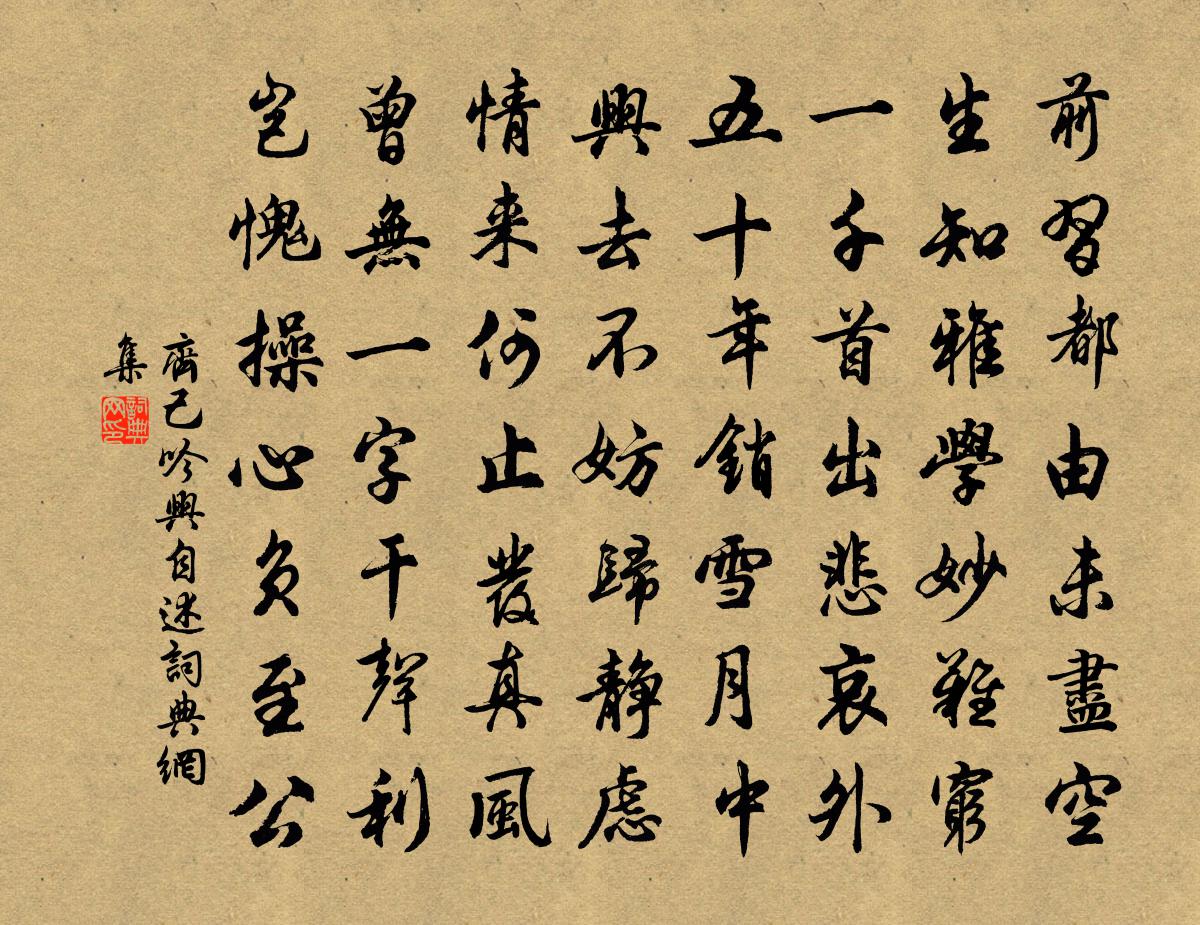 前習都由未盡空
生知雅學妙難窮
一千首出悲哀外
五十年銷雪月中
興去不妨歸静慮
情来何止發真風
曾無一字干聲利
豈愧操心負至公
齊己吟興自述詞典網
集
詞典
网印